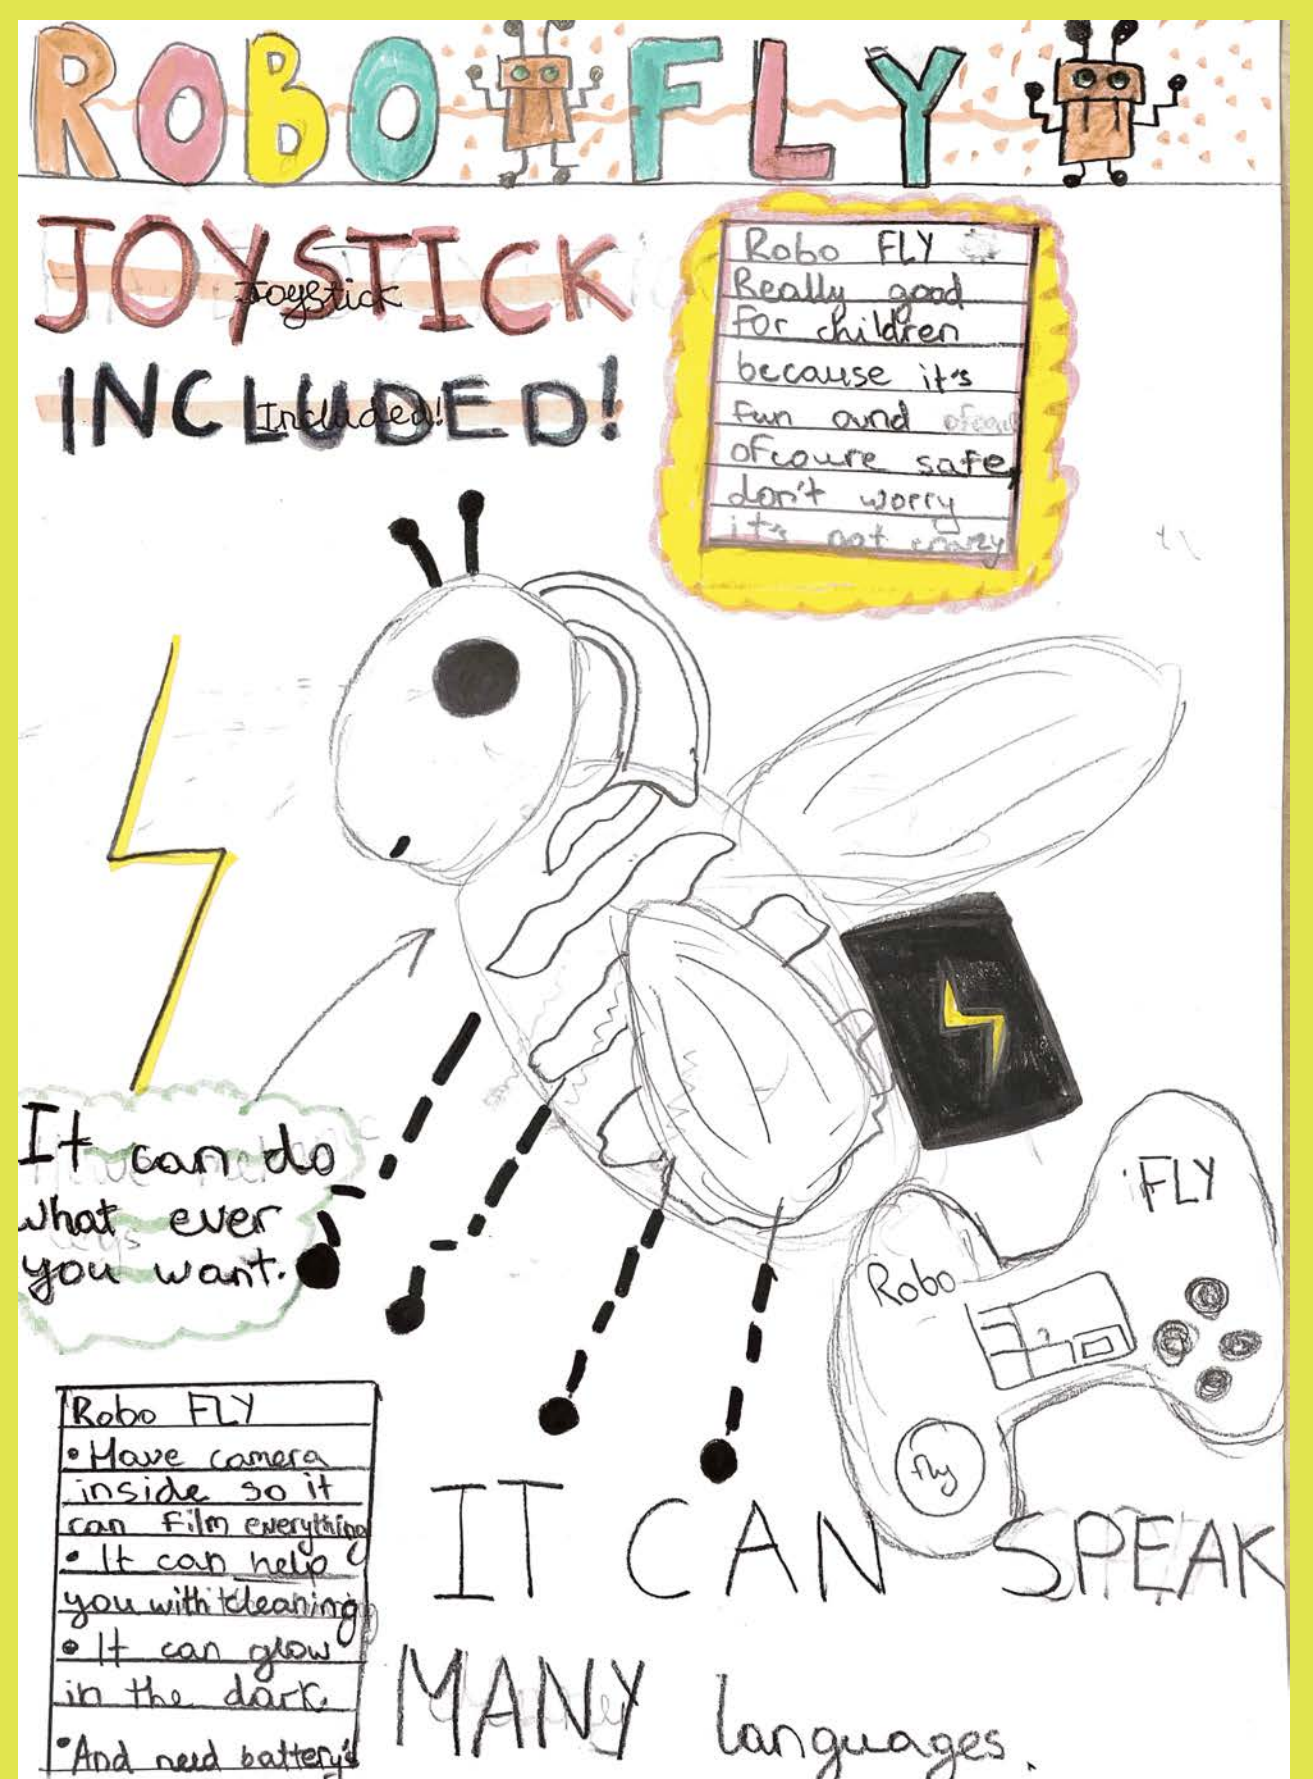 ROBO FLY
JOYSTICK
Joystick
INCLUDED!
Included!
Robo FLY
Really good
for children
because it's
fun and
ofcoure safe,
don't worry
it's not crazy
It can do
what ever
you want.
iFLY
Robo
fly
Robo FLY
• Have camera
inside so it
can film everything
• It can help
you with cleaning
• It can glow
in the dark.
• And need battery's
IT CAN SPEAK
MANY languages.